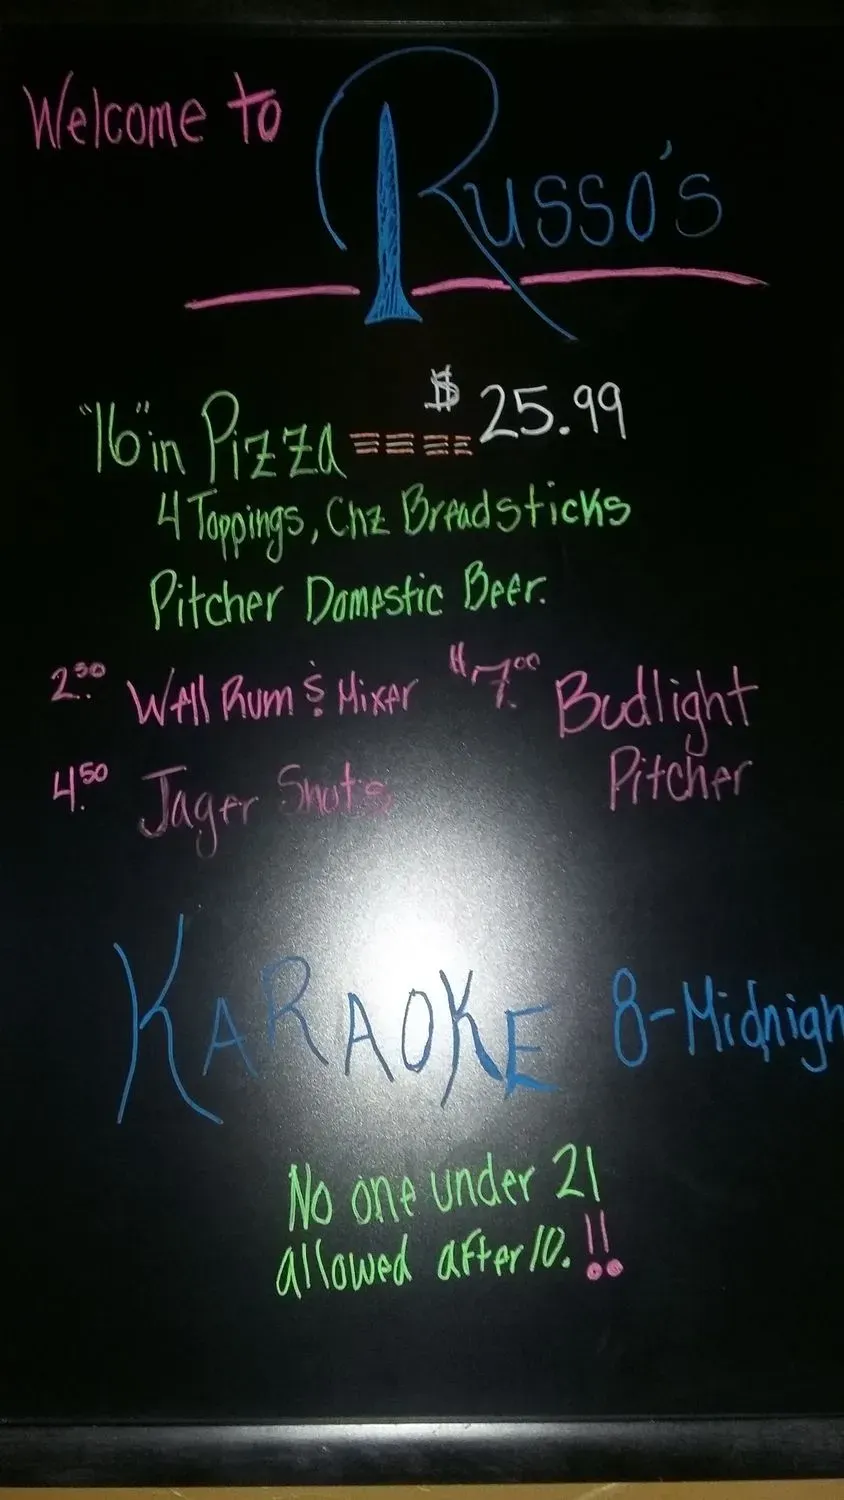 Welcome to Russo's
"16" in Pizza $25.99
4 Toppings, Chz Breadsticks
Pitcher Domestic Beer.
2.50 Well Rum & Mixer
4.50 Jager Shots
"7.00 Budlight
Pitcher
KARAOKE 8-Midnigh
No one under 21
allowed after 10. !!